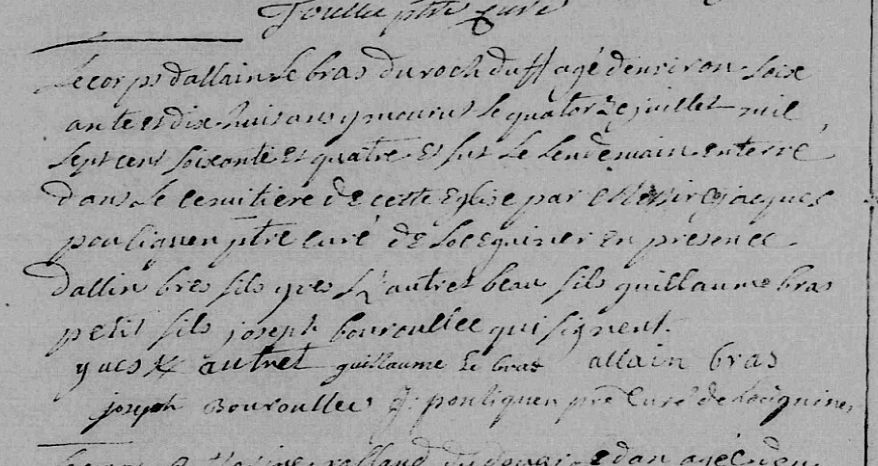 ptre curé
Le corps d'allain Le bras du roch duff agé d'environ soix
ante et dix huit ans y mourut le quatorze juillet mil
sept cent soixante et quatre et fut Le Lendemain enterré
dans Le cemitiere de cette Eglise par Messire jacques
pouliquen ptre curé de Loceguiner en presence
d'allin bras fils yves autret beau fils guillaume bras
petit fils joseph bouroullec qui signent.
yves autret guillaume Le bras allain bras
joseph Bouroullec J: pouliquen ptre Curé de Lociguiner
rolland du agé de